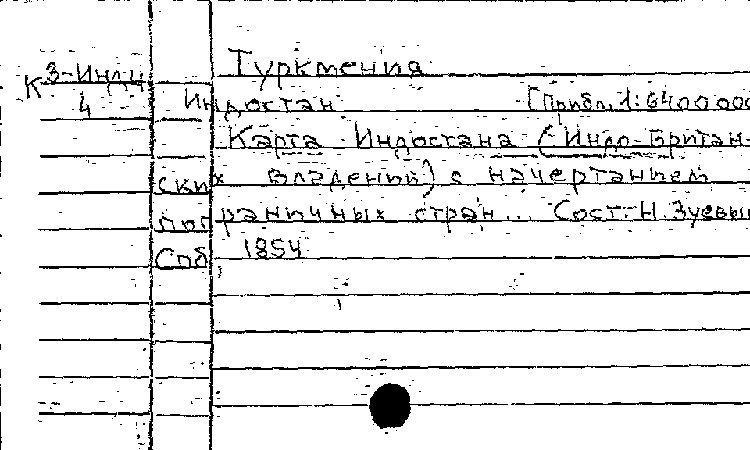 Туркмения
К 3-Инди
4
Индостан [Прибл. 1:6400000
Карта Индостана (Индо-Британ-
ских владений) с начертанием
пограничных стран.. Сост. Н. Зуевы
Спб, 1854